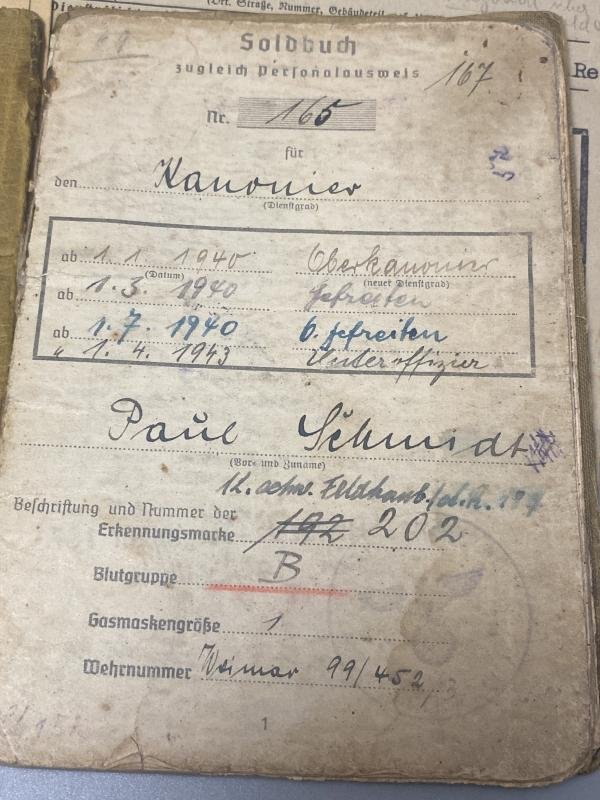 (Ort, Straße, Nummer, Gebäudeteil
Re
Soldbuch
zugleich Personalausweis
167
Nr. 165
für
den Kanonier
(Dienstgrad)
ab 1. 1. 1940 Oberkanonier
(Datum) (neuer Dienstgrad)
ab 1. 3. 1940 Gefreiten
ab 1. 7. 1940 O. Gefreiten
" 1. 4. 1943 Unteroffizier
Paul Schmidt
(Vor- und Zuname)
12. schw. Feldhaub./
Beschriftung und Nummer der
Erkennungsmarke 192 202
Blutgruppe B
Gasmaskengröße 1
Wehrnummer Weimar 99/452
1